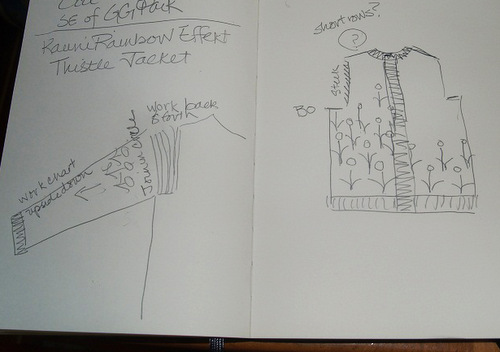 SE of GG Park
Kauni Rainbow Effekt
Thistle Jacket
work back
& forth
Join in circle
work chart
upside down
short rows?
?
Steek
BO